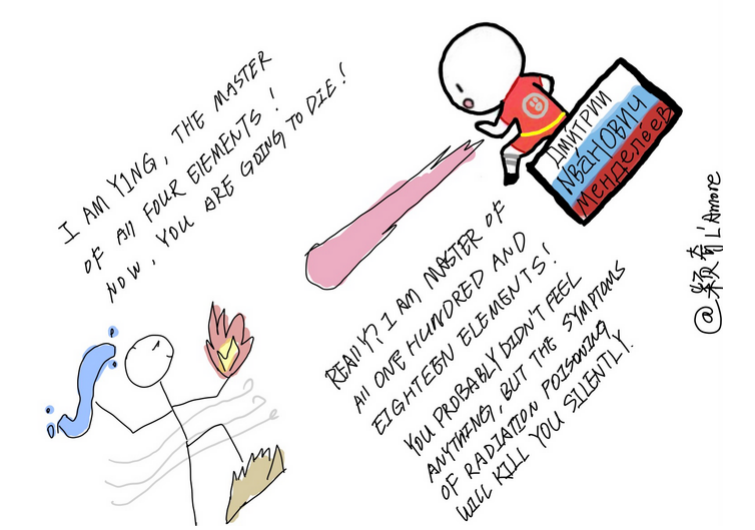 I AM YING, THE MASTER
OF All FOUR ElEMENTS!
NOW, YOU ARE GOING TO DIE!
ДМИТРИЙ
ИВАНОВИЧ
Менделеев
REAllY? I AM MASTER OF
All ONE HUNDRED AND
EIGHTEEN ELEMENTS!
YOU PROBABLY DIDN'T FEEL
ANYTHING, BUT THE SYMPTOMS
OF RADIATION POISONING
WILL KILL YOU SILENTLY.
@颖奇L'Amore